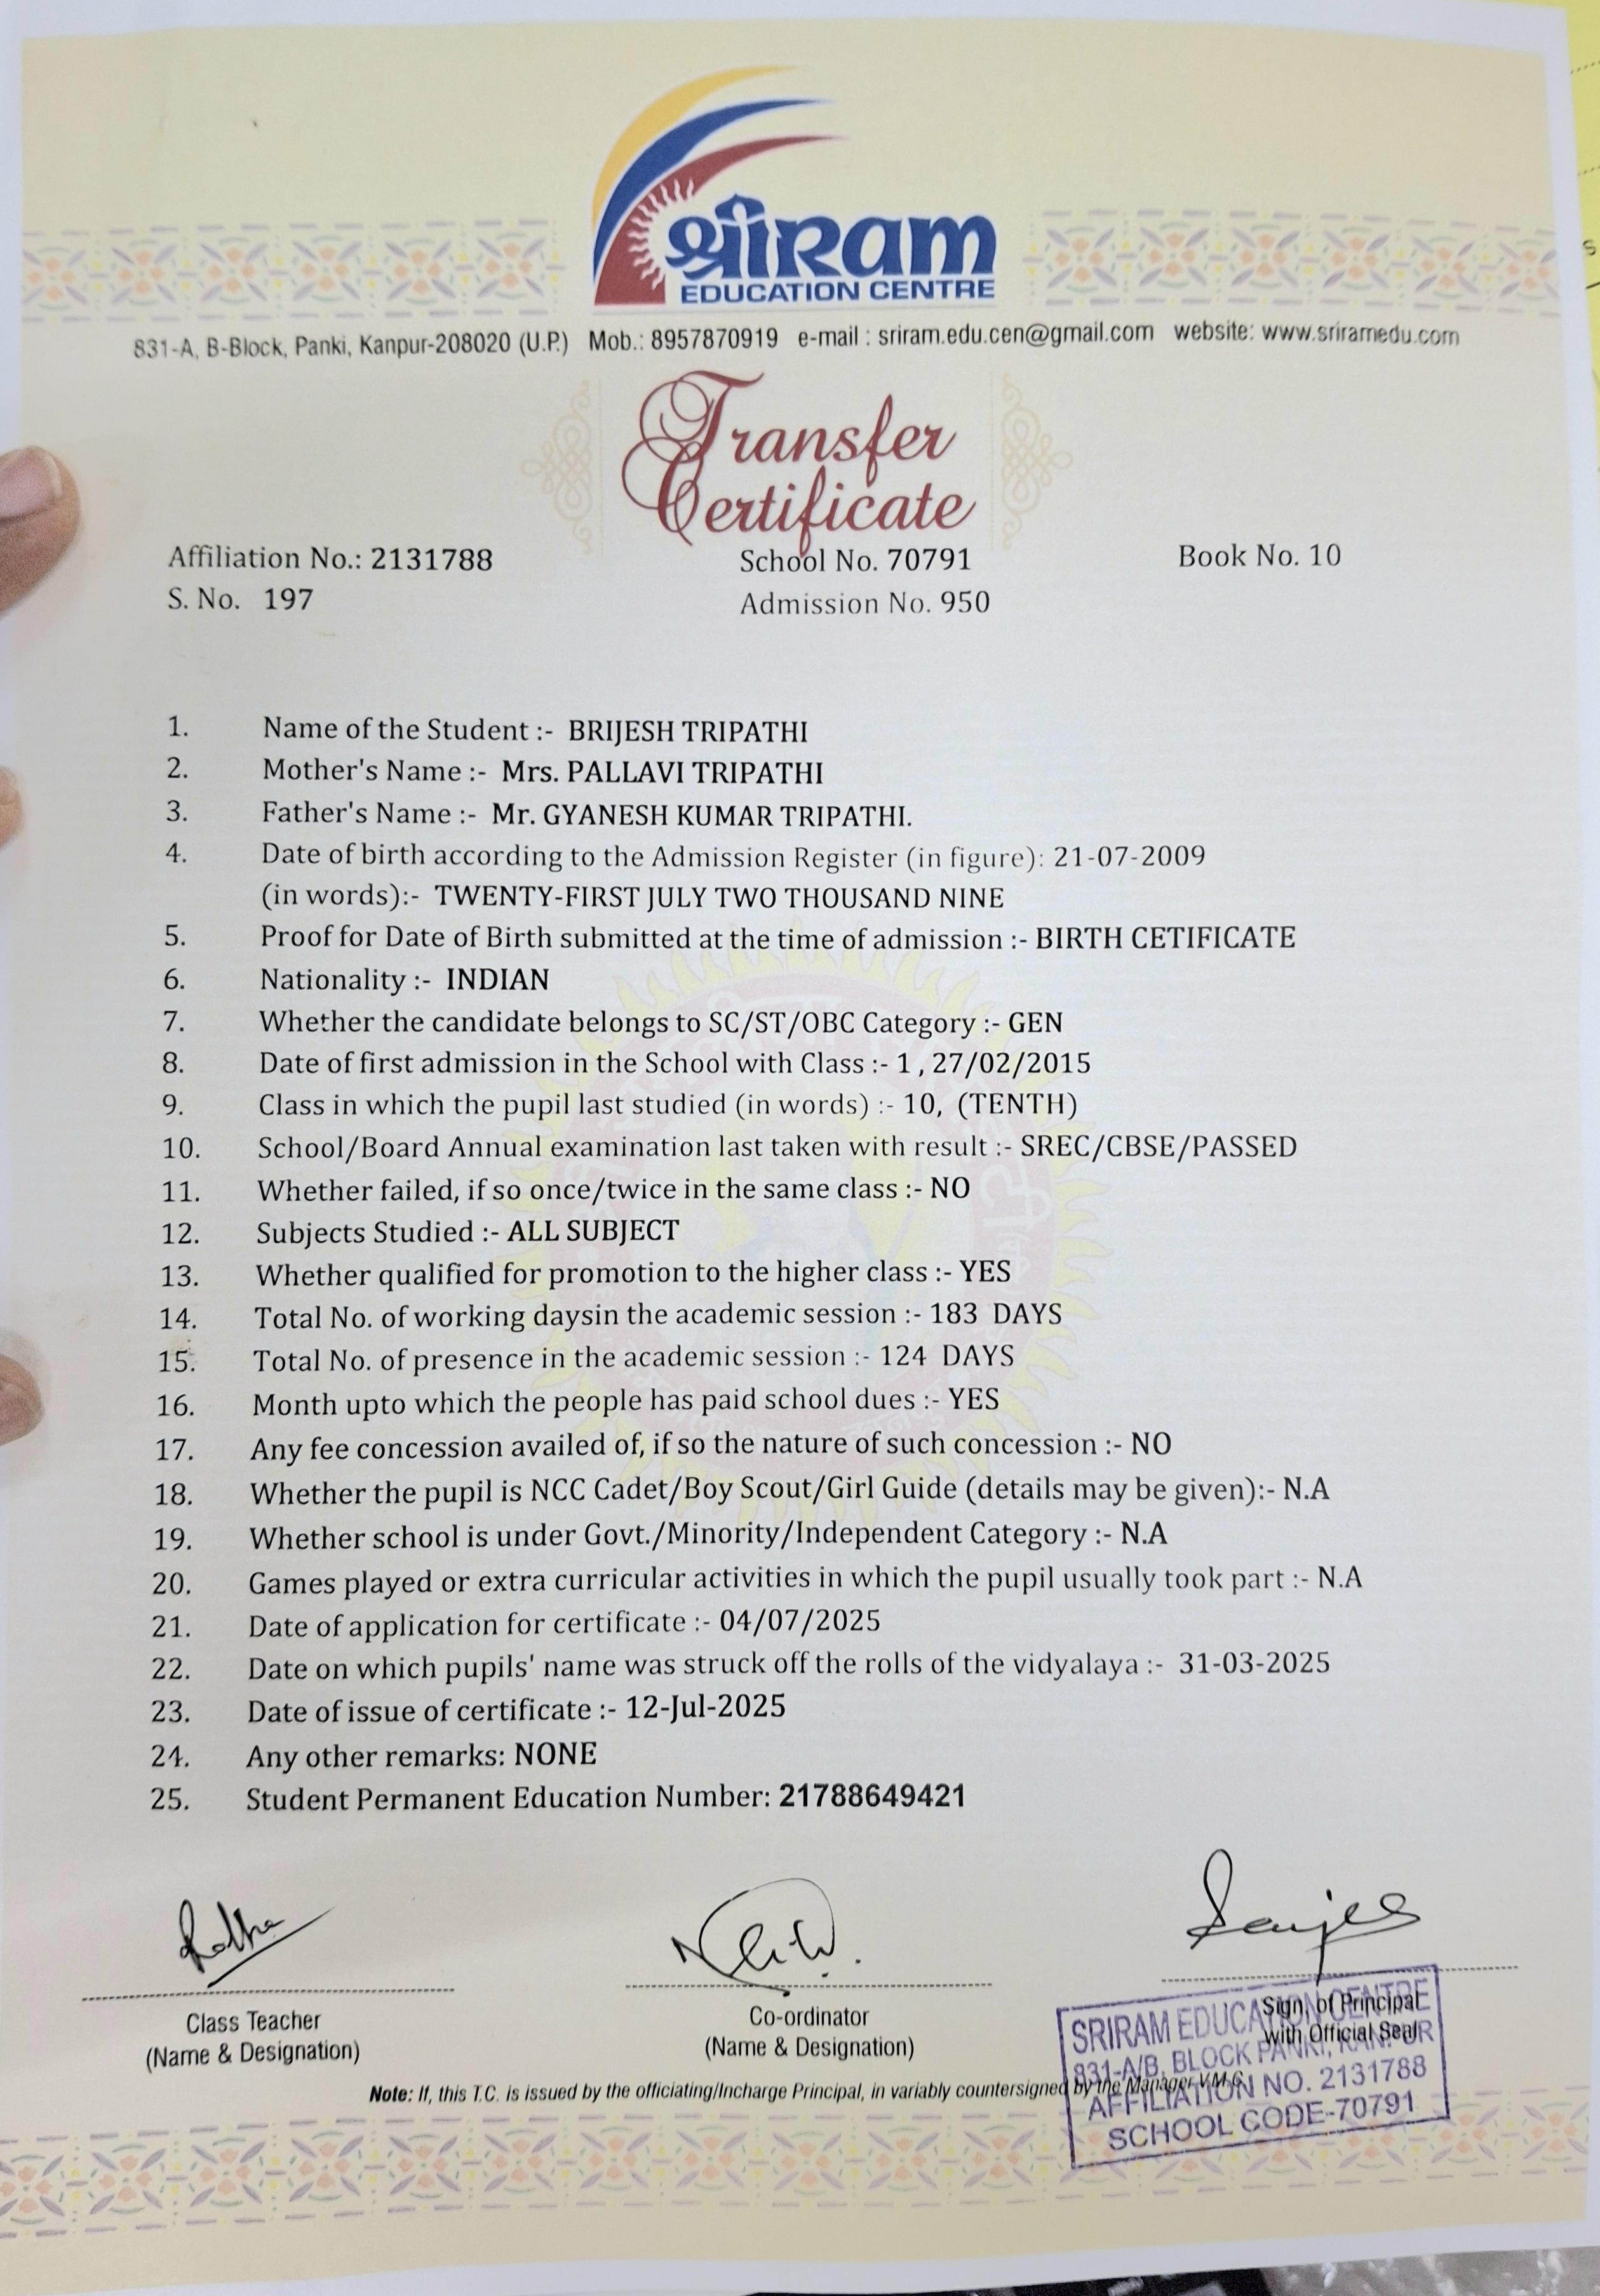 श्रीराम
EDUCATION CENTRE
831-A, B-Block, Panki, Kanpur-208020 (U.P.) Mob.: 8957870919 e-mail : sriram.edu.cen@gmail.com website: www.sriramedu.com
Transfer
Certificate
Affiliation No.: 2131788 School No. 70791 Book No. 10
S. No. 197 Admission No. 950
1. Name of the Student :- BRIJESH TRIPATHI
2. Mother's Name :- Mrs. PALLAVI TRIPATHI
3. Father's Name :- Mr. GYANESH KUMAR TRIPATHI.
4. Date of birth according to the Admission Register (in figure): 21-07-2009
(in words):- TWENTY-FIRST JULY TWO THOUSAND NINE
5. Proof for Date of Birth submitted at the time of admission :- BIRTH CETIFICATE
6. Nationality :- INDIAN
7. Whether the candidate belongs to SC/ST/OBC Category :- GEN
8. Date of first admission in the School with Class :- 1 , 27/02/2015
9. Class in which the pupil last studied (in words) :- 10, (TENTH)
10. School/Board Annual examination last taken with result :- SREC/CBSE/PASSED
11. Whether failed, if so once/twice in the same class :- NO
12. Subjects Studied :- ALL SUBJECT
13. Whether qualified for promotion to the higher class :- YES
14. Total No. of working daysin the academic session :- 183 DAYS
15. Total No. of presence in the academic session :- 124 DAYS
16. Month upto which the people has paid school dues :- YES
17. Any fee concession availed of, if so the nature of such concession :- NO
18. Whether the pupil is NCC Cadet/Boy Scout/Girl Guide (details may be given):- N.A
19. Whether school is under Govt./Minority/Independent Category :- N.A
20. Games played or extra curricular activities in which the pupil usually took part :- N.A
21. Date of application for certificate :- 04/07/2025
22. Date on which pupils' name was struck off the rolls of the vidyalaya :- 31-03-2025
23. Date of issue of certificate :- 12-Jul-2025
24. Any other remarks: NONE
25. Student Permanent Education Number: 21788649421
Class Teacher Co-ordinator Sign. of Principal
(Name & Designation) (Name & Designation) with Official Seal
Note: If, this T.C. is issued by the officiating/Incharge Principal, in variably countersigned by the Manager V.M.C.
SRIRAM EDUCATION CENTRE
831-A/B, BLOCK PANKI, KANPUR
AFFILIATION NO. 2131788
SCHOOL CODE-70791